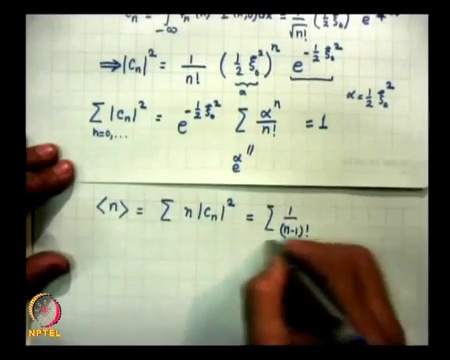 c_n = ∫_{-∞} ψ_n(x) Ψ(x,0) dx = 1/√n! (1/2 ξ_0^2) e
⟹ |c_n|^2 = 1/n! (1/2 ξ_0^2)^n e^{-1/2 ξ_0^2}
α
α = 1/2 ξ_0^2
∑_{n=0,...} |c_n|^2 = e^{-1/2 ξ_0^2} ∑ α^n/n! = 1
e^α
⟨n⟩ = ∑ n |c_n|^2 = ∑ 1/(n-1)!
NPTEL